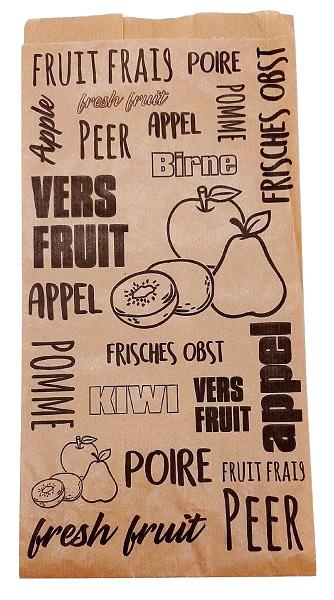 FRUIT FRAIS
POIRE
FRISCHES OBST
Apple
fresh fruit
POMME
PEER
APPEL
Birne
VERS
FRUIT
APPEL
POMME
FRISCHES OBST
appel
KIWI
VERS
FRUIT
POIRE
FRUIT FRAIS
fresh fruit
PEER